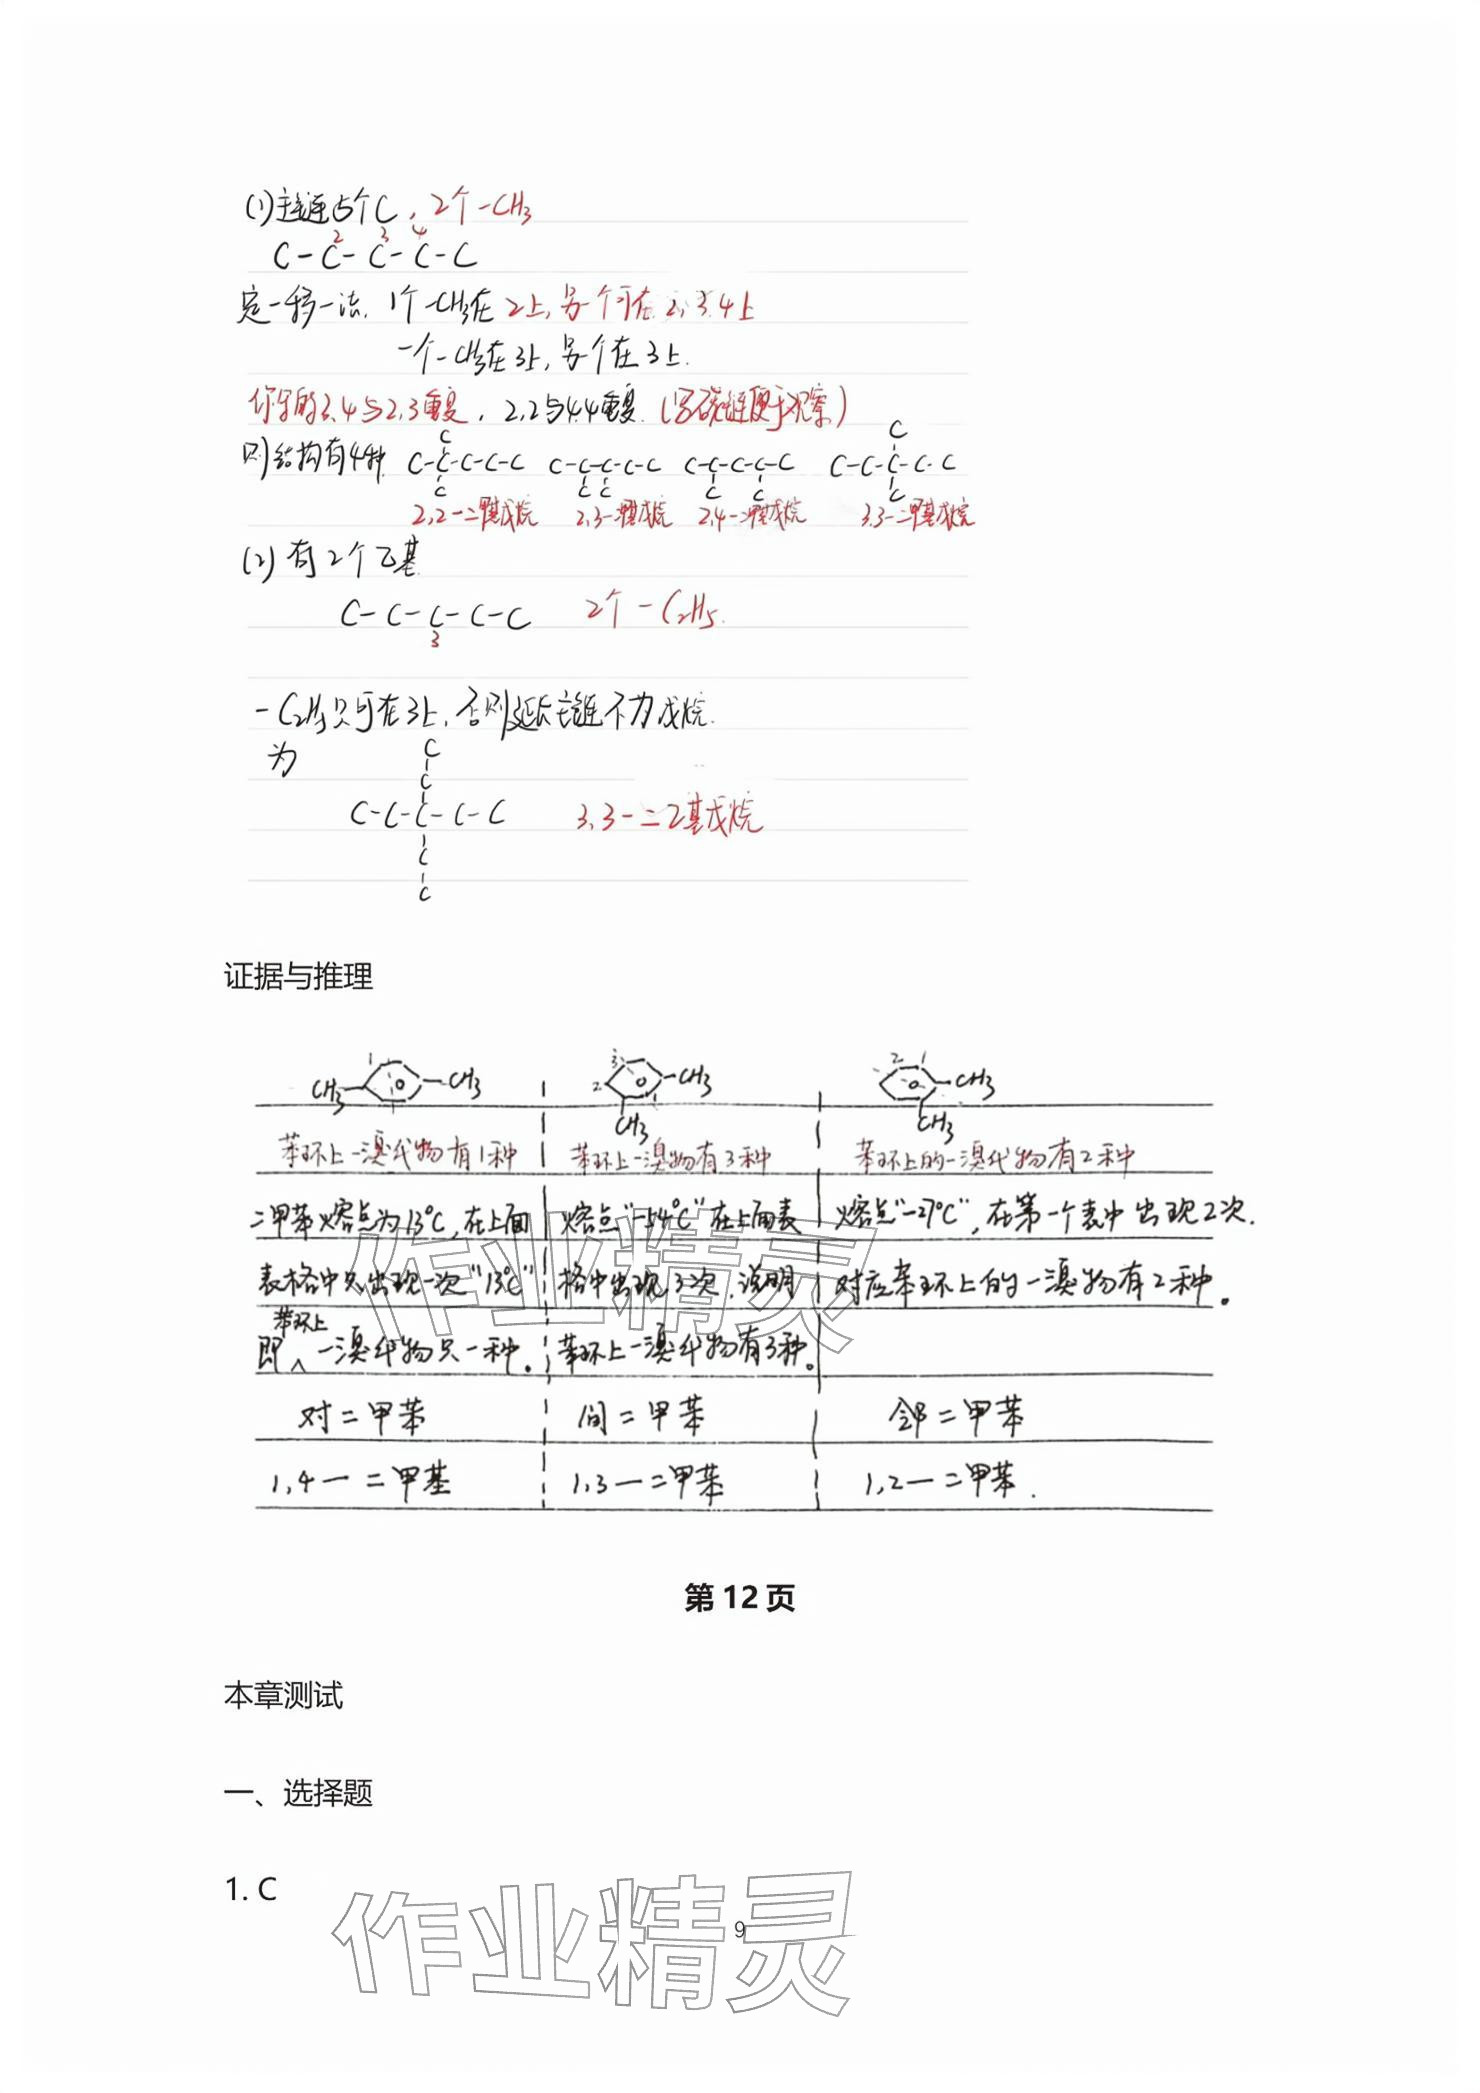 (1)主链5个C，2个-CH₃
2 3 4
C-C-C-C-C
定一移一法，1个-CH₃在2上，另一个可在2,3,4上
一个-CH₃在3上，另一个在3上.
3,4与2,3重复，2,2与4,4重复.(写碳链便于观察)
则结构有4种
C C
C-C-C-C-C C-C-C-C-C C-C-C-C-C C-C-C-C-C
C C C C C C
2,2-二甲基戊烷 2,3-二甲基戊烷 2,4-二甲基戊烷 3,3-二甲基戊烷
(2)有2个乙基
C-C-C-C-C 2个-C₂H₅.
3
-C₂H₅只可在3上，否则延长主链不为戊烷.
为
C
C
C-C-C-C-C 3,3-二乙基戊烷
C
C
证据与推理
1 3 2 1
CH₃ CH₃ 2 CH₃ CH₃
1 CH₃ CH₃
苯环上一溴代物有1种 苯环上一溴物有3种 苯环上的一溴代物有2种
二甲苯熔点为13℃,在上面 熔点"-54℃"在上面表 熔点"-27℃",在第一个表中出现2次.
表格中只出现一次"13℃" 格中出现3次,说明 对应苯环上的一溴物有2种。
苯环上
即∧一溴代物只一种。 苯环上一溴代物有3种。
对二甲苯 间二甲苯 邻二甲苯
1,4一二甲基 1,3一二甲苯 1,2一二甲苯.
作业精灵
第12页
本章测试
一、选择题
1. C
作业精灵
9